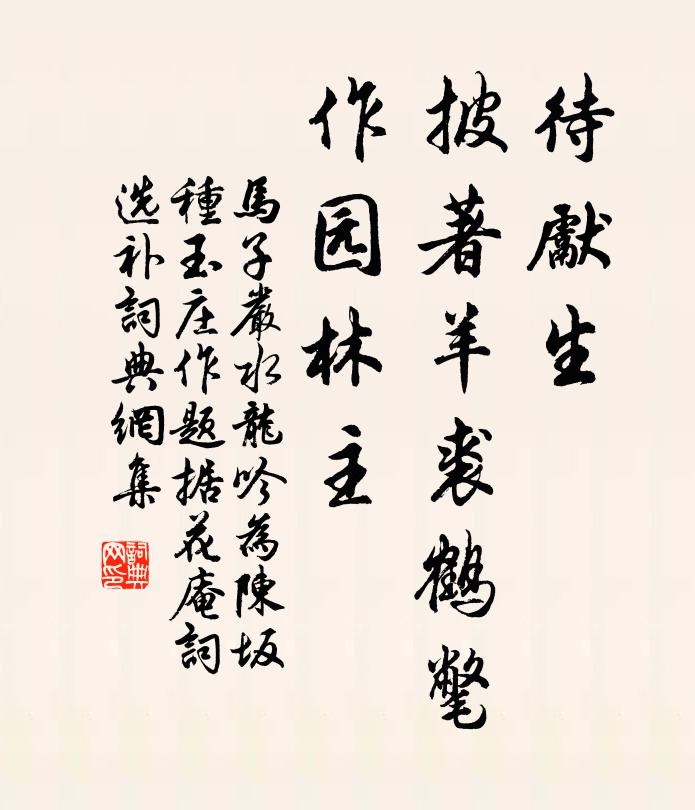 待獻生
披著羊裘鶴氅
作园林主
馬子嚴水龍吟為陳坂
種玉庄作题据花庵詞
选补詞典網集
詞典网印